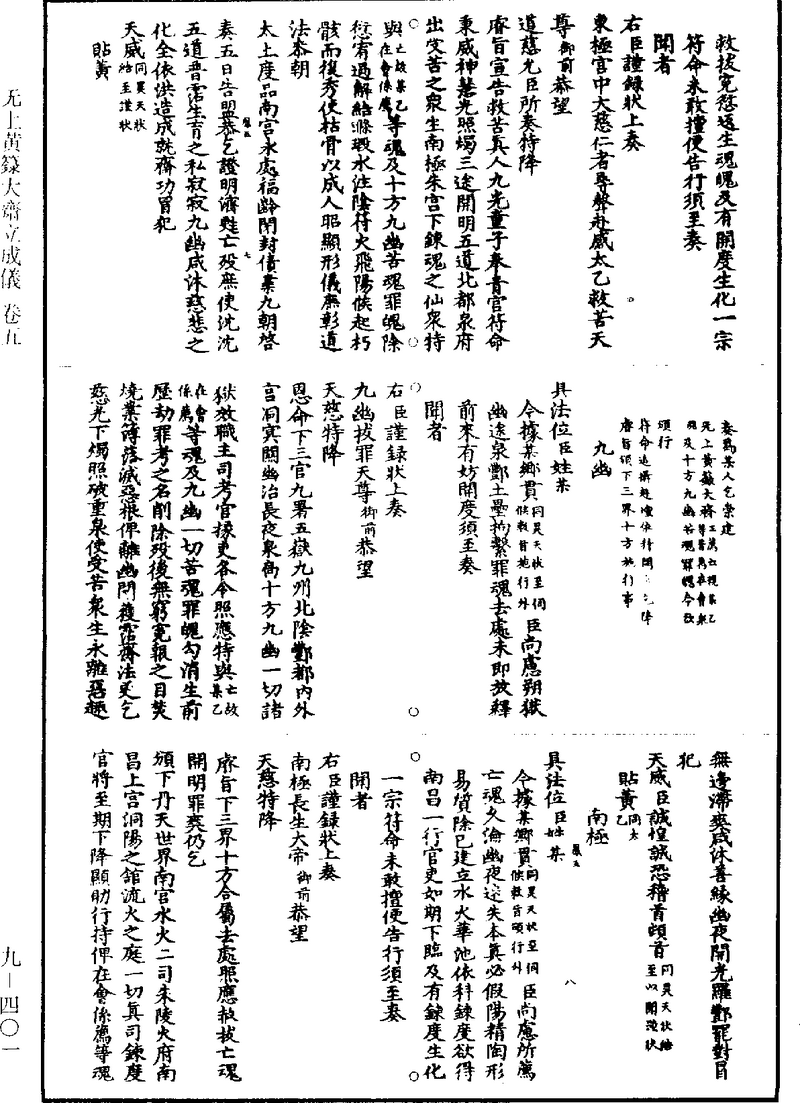 救拔冤愆返生魂魄及有開度生化一宗
符命未敢擅便告行須至奏
聞者
右臣謹錄狀上奏
東極宮中大慈仁者尋聲赴感太乙救苦天
尊御前恭望
道慈允臣所奏特降
睿旨宣告救苦真人九光童子奉青宮符命
秉威神慧光照燭三途開明五道北都泉府
出受苦之衆生南極朱宮下鍊魂之仙衆特
與亡故某乙在會係薦等魂及十方九幽苦魂罪魄除
愆宥過解結滌瑕水注陰符火飛陽候起朽
骸而復秀使枯骨以成人昭顯形儀廡彰道
法泰朝
太上度品南宮永處福齡閉封債業九朝啓
奏五日告盟恭乞證明濟甦亡歿庶使沈沈
五道普霑生育之私寂寂九幽咸沐慈悲之
化全依洪造成就齋功冒犯
天威同昊天狀結至謹狀
貼黃
奏爲某人乞崇建
无上黃籙大齋
九幽
具法位臣姓某
今據某鄉貫同昊天狀至伺候敕旨施行外臣尚慮朔獄
幽途泉酆土壘拘繫罪魂去處未即放釋
前來有妨開度須至奏
聞者
右臣謹錄狀上奏
九幽拔罪天尊御前恭望
天慈特降
恩命下三官九署五嶽九州北陰酆都內外
宮洞冥關幽治長夜泉扃十方九幽一切諸
獄放職主司考官掾吏各令照應特與亡故某乙
在會係薦等魂及九幽一切苦魂罪魄勾消生前
歷劫罪考之名削除歿後無窮冤報之目焚
燒業簿落滅惡根俾離幽關獲霑齋法更乞
慈光下燭照破重泉使受苦衆生永離惡趣
無邊滯爽咸沐善緣幽夜開光羅酆罷對冒
犯
天威臣誠惶誠恐稽首頓首同昊天狀結至以聞謹狀
貼黃同太乙
南極
具法位臣姓某
今據某鄉貫同昊天狀至伺候敕旨頒行外臣尚慮所薦
亡魂久淪幽夜迷失本真必假陽精陶形
易質除已建立水火華池依科鍊度欲得
南昌一行官吏如期下臨及有鍊度生化
一宗符命未敢擅便告行須至奏
聞者
右臣謹錄狀上奏
南極長生大帝御前恭望
天慈特降
睿旨下三界十方合屬去處照應救拔亡魂
開明罪爽仍乞
頒下丹天世界南宮水火二司朱陵火府南
昌上宮洞陽之館流火之庭一切真司鍊度
官將至期下降顯助行持俾在會係薦等魂
无上黃籙大齋立成儀 卷五
九－四〇一